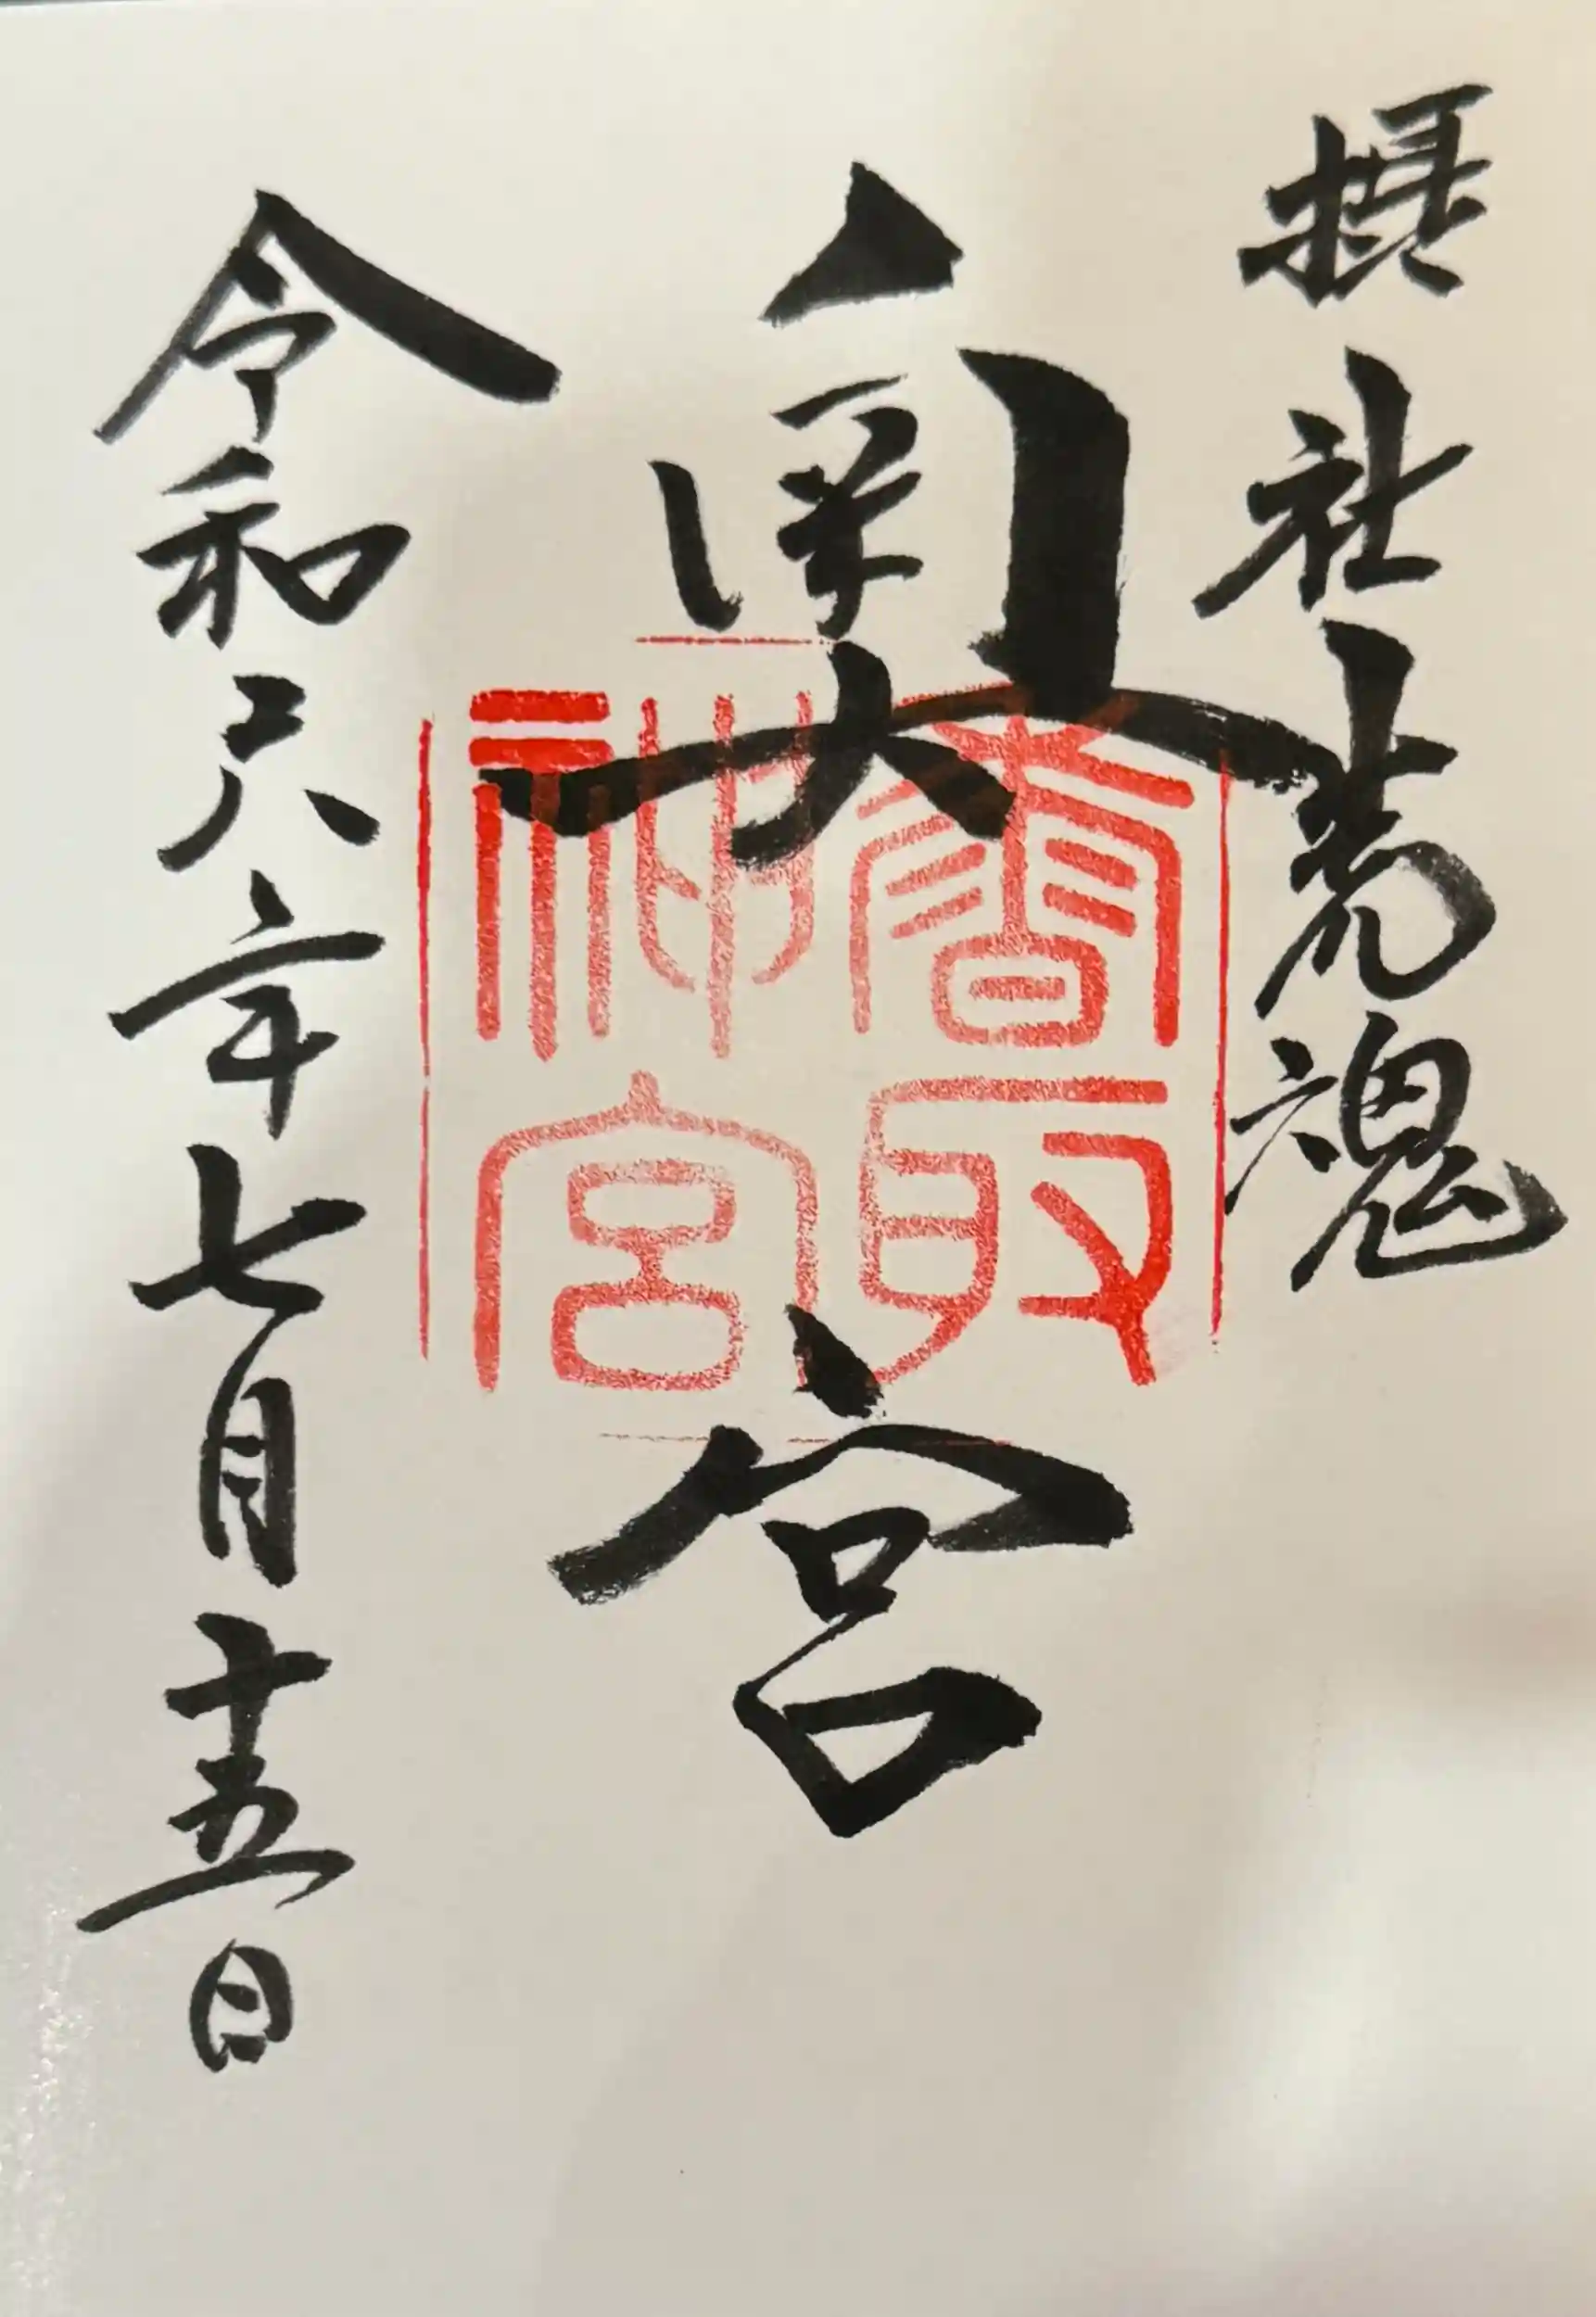 摂社荒魂
奥宮
香取神宮
令和六年七月十五日